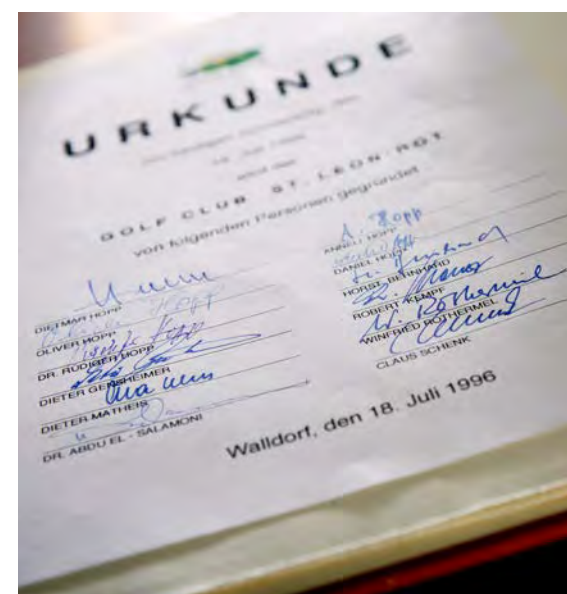 URKUNDE
wird der
GOLF CLUB ST. LEON-ROT
von folgenden Personen gegründet
DIETMAR HOPP
Hopp
OLIVER HOPP
Hopp
DR. RÜDIGER HOPP
DIETER GENSHEIMER
DIETER MATHEIS
DR. ABDU EL - SALAMONI
A. Hopp
ANNELI HOPP
DANIEL HOPP
HORST BERNHARD
ROBERT KEMPF
W. Rothermel
WINFRIED ROTHERMEL
CLAUS SCHENK
Walldorf, den 18. Juli 1996